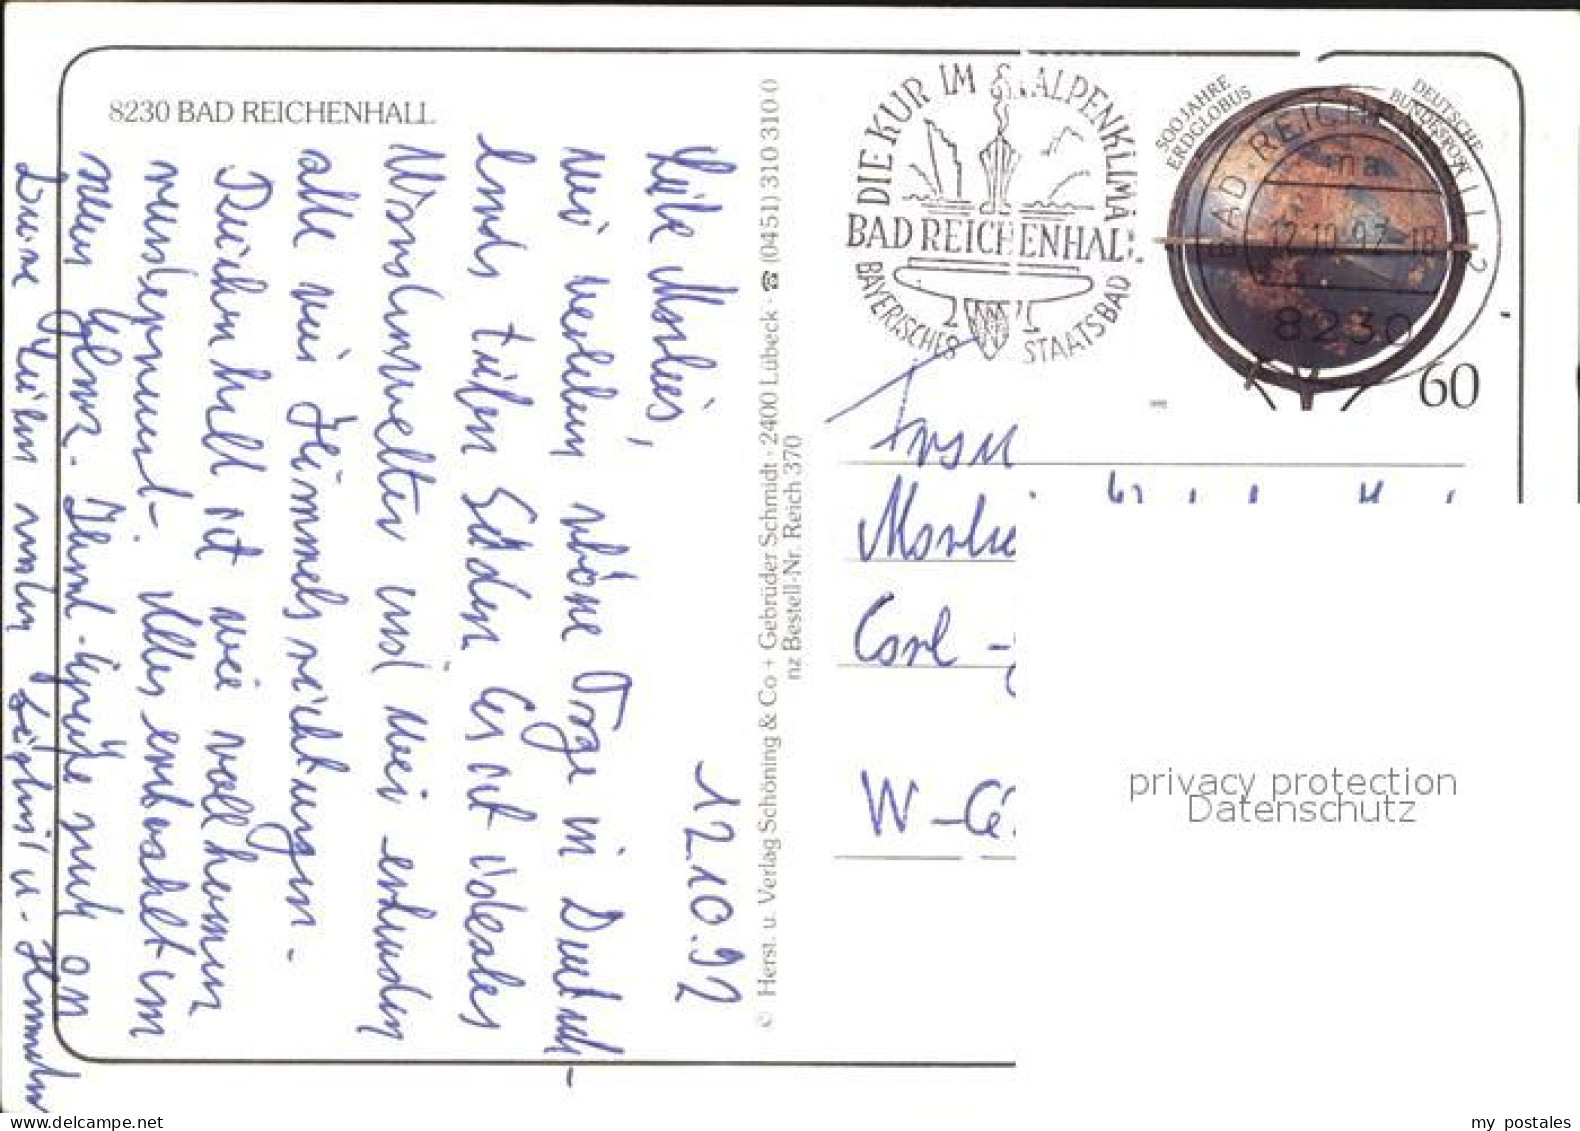 8230 BAD REICHENHALL
12.10.92
Liebe Marlies,
wir verleben schöne Tage in Deutsch-
lands tiefen Süden. Es ist ideales
Wanderwetter und wir erkunden
alle vier Himmelsrichtungen.
Reichenhall ist wie vollkommen
ausgepumt. Alles erstrahlt im
neuen Glanz. Grüße auch an
Deine
© Herst. u. Verlag Schöning & Co + Gebrüder Schmidt · 2400 Lübeck · ☎ (0451) 310 310-0
nz Bestell-Nr. Reich 370
DIE KUR IM ALPENKLIMA
BAD REICHENHALL
BAYERISCHES STAATSBAD
500 JAHRE
ERDGLOBUS
DEUTSCHE
BUNDESPOST
60
BAD REICHENHALL 2
ma
12.10.92-18
8230
Frau
Marlie
Carl -
W - Ce
privacy protection
Datenschutz
my postales